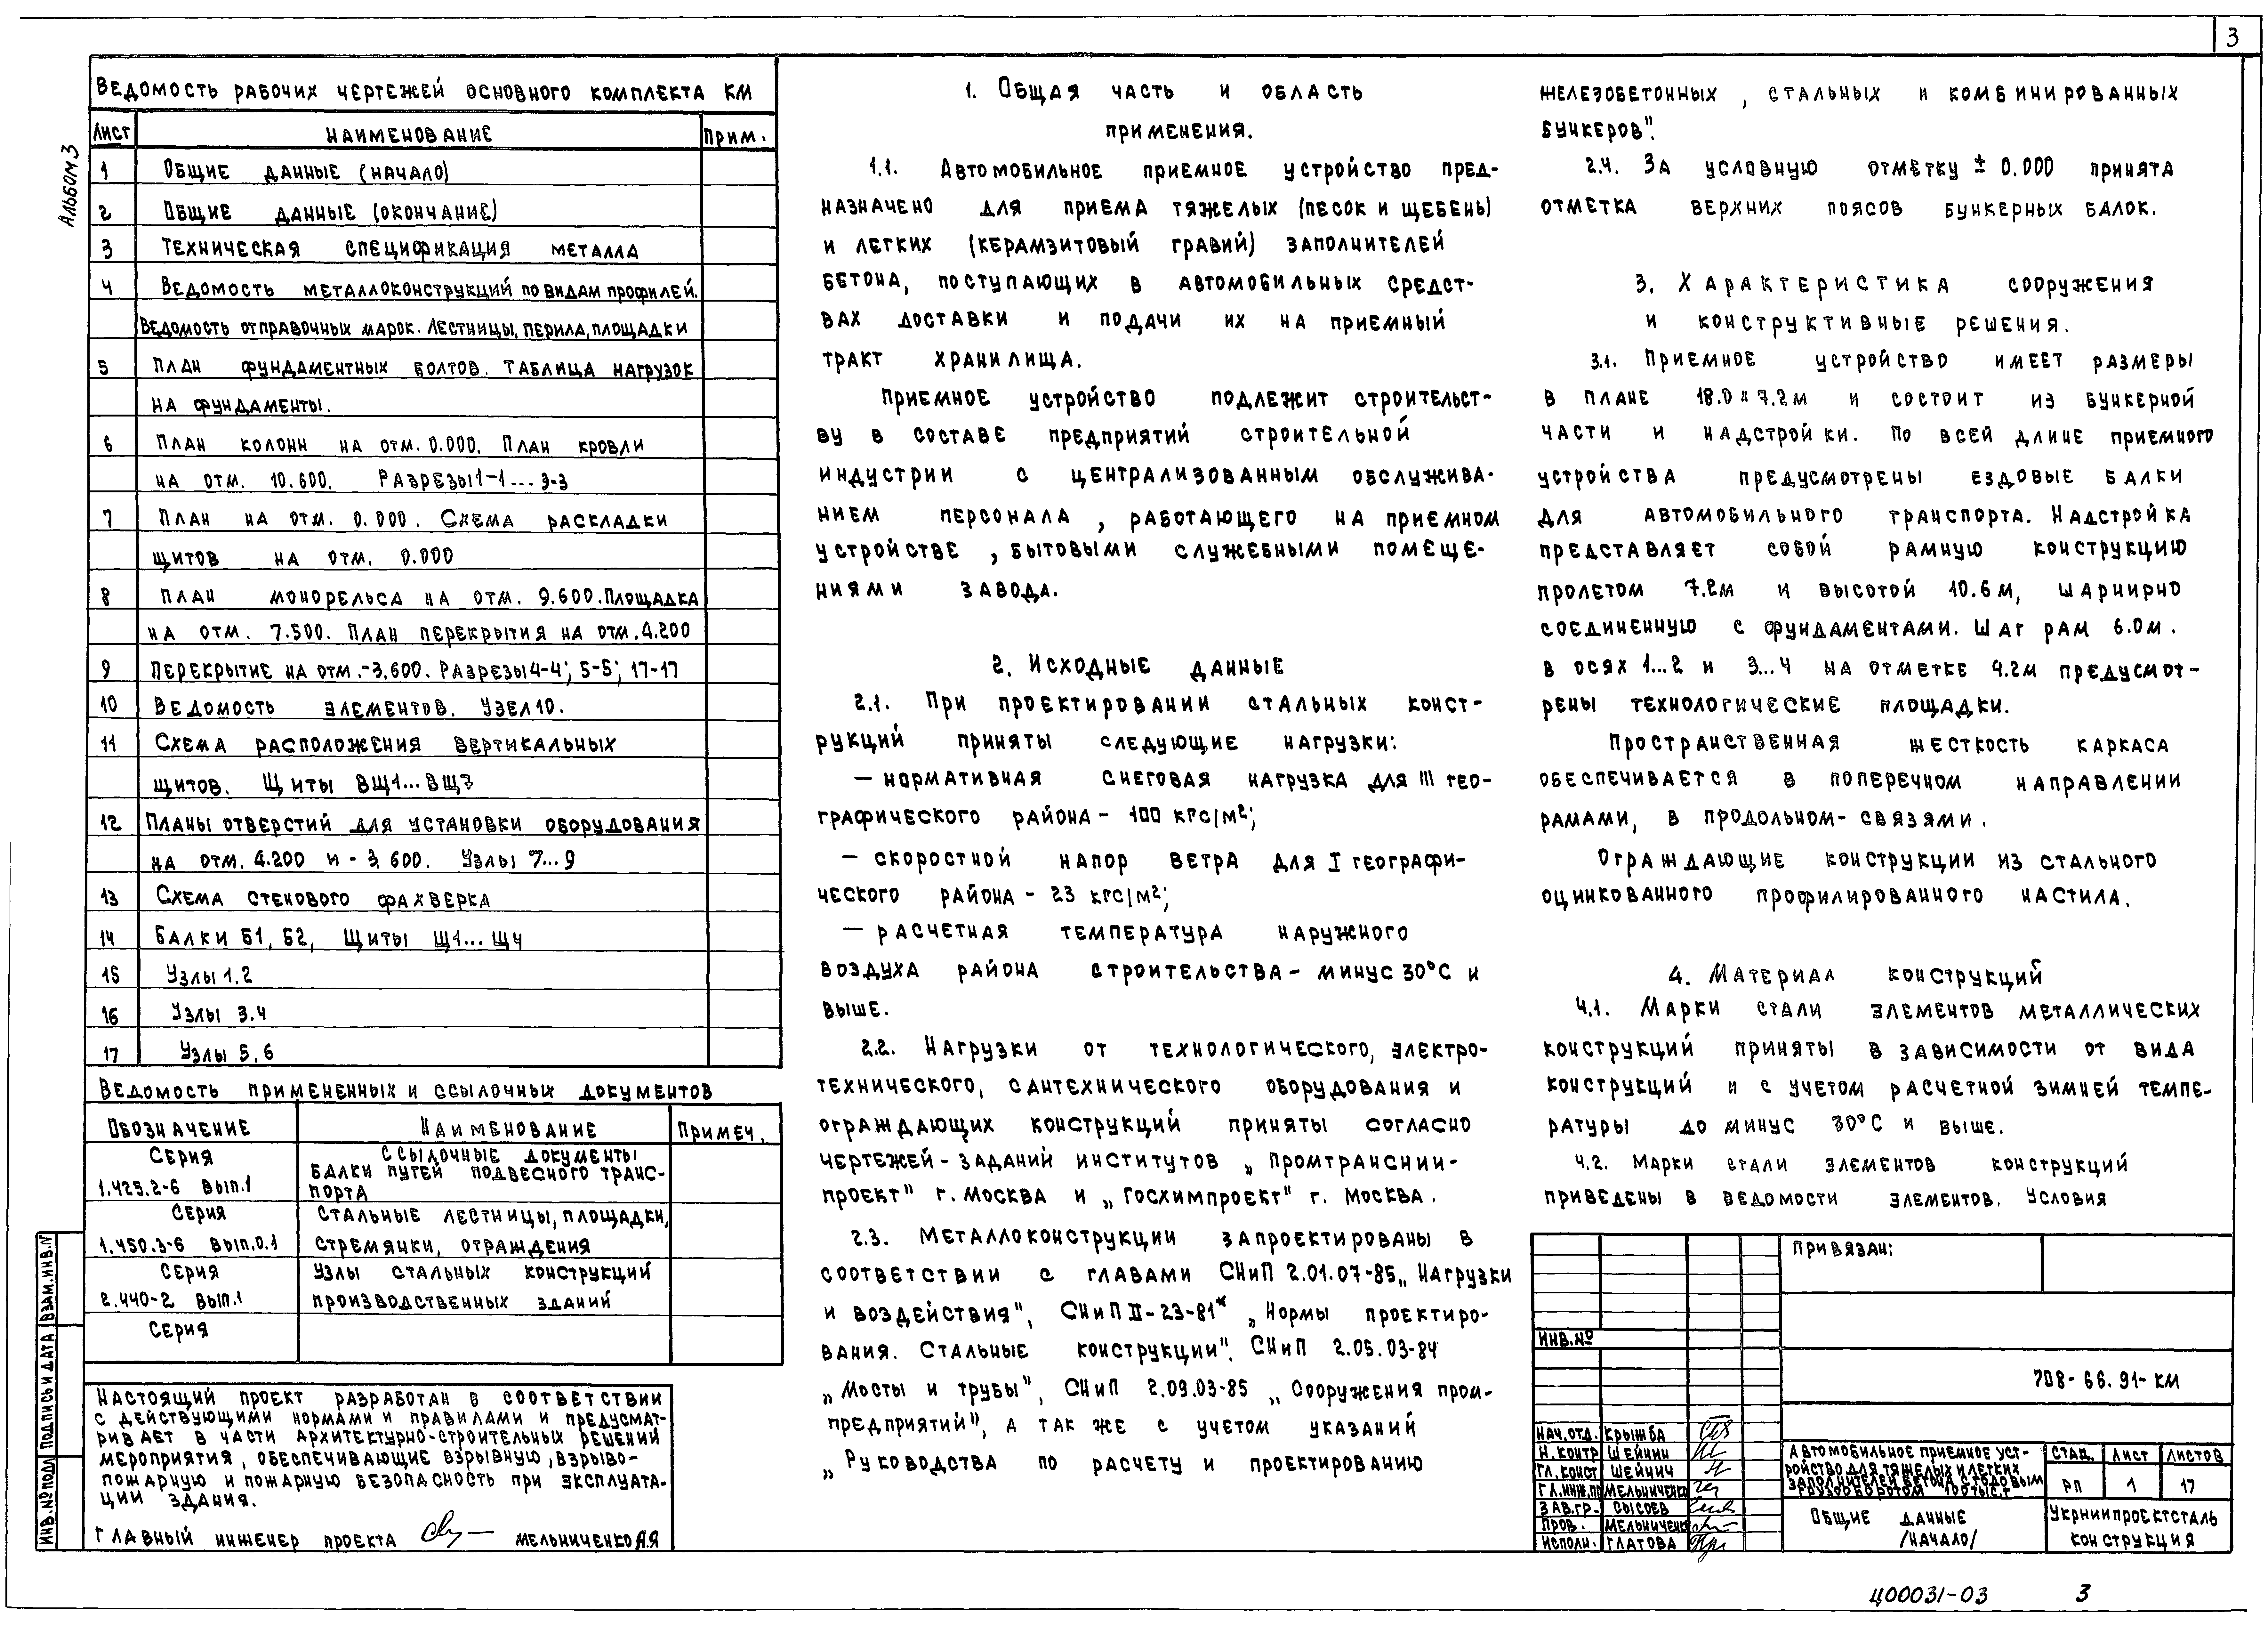 3
Альбом 3
Ведомость рабочих чертежей основного комплекта КМ
Лист Наименование Прим.
1 Общие данные (начало)
2 Общие данные (окончание)
3 Техническая спецификация металла
4 Ведомость металлоконструкций по видам профилей.
Ведомость отправочных марок. Лестницы, перила, площадки
5 План фундаментных болтов. Таблица нагрузок
на фундаменты.
6 План колонн на отм. 0.000. План кровли
на отм. 10.600. Разрезы 1-1...3-3
7 План на отм. 0.000. Схема раскладки
щитов на отм. 0.000
8 План монорельса на отм. 9.600. Площадка
на отм. 7.500. План перекрытия на отм. 4.200
9 Перекрытие на отм. -3.600. Разрезы 4-4; 5-5; 17-17
10 Ведомость элементов. Узел 10.
11 Схема расположения вертикальных
щитов. Щиты ВЩ1...ВЩ7
12 Планы отверстий для установки оборудования
на отм. 4.200 и -3.600. Узлы 7...9
13 Схема стенового фахверка
14 Балки Б1, Б2, Щиты Щ1...Щ4
15 Узлы 1.2
16 Узлы 3.4
17 Узлы 5.6
Ведомость примененных и ссылочных документов
Обозначение Наименование Примеч.
Ссылочные документы
Серия
1.425.2-6 вып.1
Балки путей подвесного транс-
порта
Серия
1.450.3-6 вып.0.1
Стальные лестницы, площадки,
стремянки, ограждения
Серия
2.440-2 вып.1
Узлы стальных конструкций
производственных зданий
Серия
Настоящий проект разработан в соответствии
с действующими нормами и правилами и предусмат-
ривает в части архитектурно-строительных решений
мероприятия, обеспечивающие взрывную, взрыво-
пожарную и пожарную безопасность при эксплуата-
ции здания.
Главный инженер проекта Мельниченко А.Я
Инв. № подл Подпись и дата Взам.инв.N
1. Общая часть и область
применения.
1.1. Автомобильное приемное устройство пред-
назначено для приема тяжелых (песок и щебень)
и легких (керамзитовый гравий) заполнителей
бетона, поступающих в автомобильных средст-
вах доставки и подачи их на приемный
тракт хранилища.
Приемное устройство подлежит строительст-
ву в составе предприятий строительной
индустрии с централизованным обслужива-
нием персонала, работающего на приемном
устройстве, бытовыми служебными помеще-
ниями завода.
2. Исходные данные
2.1. При проектировании стальных конст-
рукций приняты следующие нагрузки:
— нормативная снеговая нагрузка для III гео-
графического района - 100 кгс/м²;
— скоростной напор ветра для I географи-
ческого района - 23 кгс/м²;
— расчетная температура наружного
воздуха района строительства - минус 30°С и
выше.
2.2. Нагрузки от технологического, электро-
технического, сантехнического оборудования и
ограждающих конструкций приняты согласно
чертежей-заданий институтов „Промтрансний-
проект" г. Москва и „Госхимпроект" г. Москва.
2.3. Металлоконструкции запроектированы в
соответствии с главами СНиП 2.01.07-85 „Нагрузки
и воздействия", СНиП II-23-81* „Нормы проектиро-
вания. Стальные конструкции". СНиП 2.05.03-84
„Мосты и трубы", СНиП 2.09.03-85 „Сооружения пром-
предприятий", а так же с учетом указаний
„Руководства по расчету и проектированию
железобетонных, стальных и комбинированных
бункеров".
2.4. За условную отметку ± 0.000 принята
отметка верхних поясов бункерных балок.
3. Характеристика сооружения
и конструктивные решения.
3.1. Приемное устройство имеет размеры
в плане 18.0 х 7.2м и состоит из бункерной
части и надстройки. По всей длине приемного
устройства предусмотрены ездовые балки
для автомобильного транспорта. Надстройка
представляет собой рамную конструкцию
пролетом 7.2м и высотой 10.6м, шарнирно
соединенную с фундаментами. Шаг рам 6.0м.
в осях 1...2 и 3...4 на отметке 4.2м предусмот-
рены технологические площадки.
Пространственная жесткость каркаса
обеспечивается в поперечном направлении
рамами, в продольном - связями.
Ограждающие конструкции из стального
оцинкованного профилированного настила.
4. Материал конструкций
4.1. Марки стали элементов металлических
конструкций приняты в зависимости от вида
конструкций и с учетом расчетной зимней темпе-
ратуры до минус 30°С и выше.
4.2. Марки стали элементов конструкций
приведены в ведомости элементов. Условия
Привязан:
Инв.№
708-66.91-КМ
Нач.отд. Крыжба
Н.контр Шейнин
Гл.конст Шейнич
Гл.инж.пр Мельниченко
Зав.гр. Сысоев
Пров. Мельниченк
Исполн. Глатова
Автомобильное приемное уст-
ройство для тяжелых и легких
заполнителей бетона с годовым
грузооборотом 100 тыс.т
Стад. Лист Листов
РП 1 17
Общие данные
/начало/
Укрниипроектсталь
конструкция
Ц00031-03 3